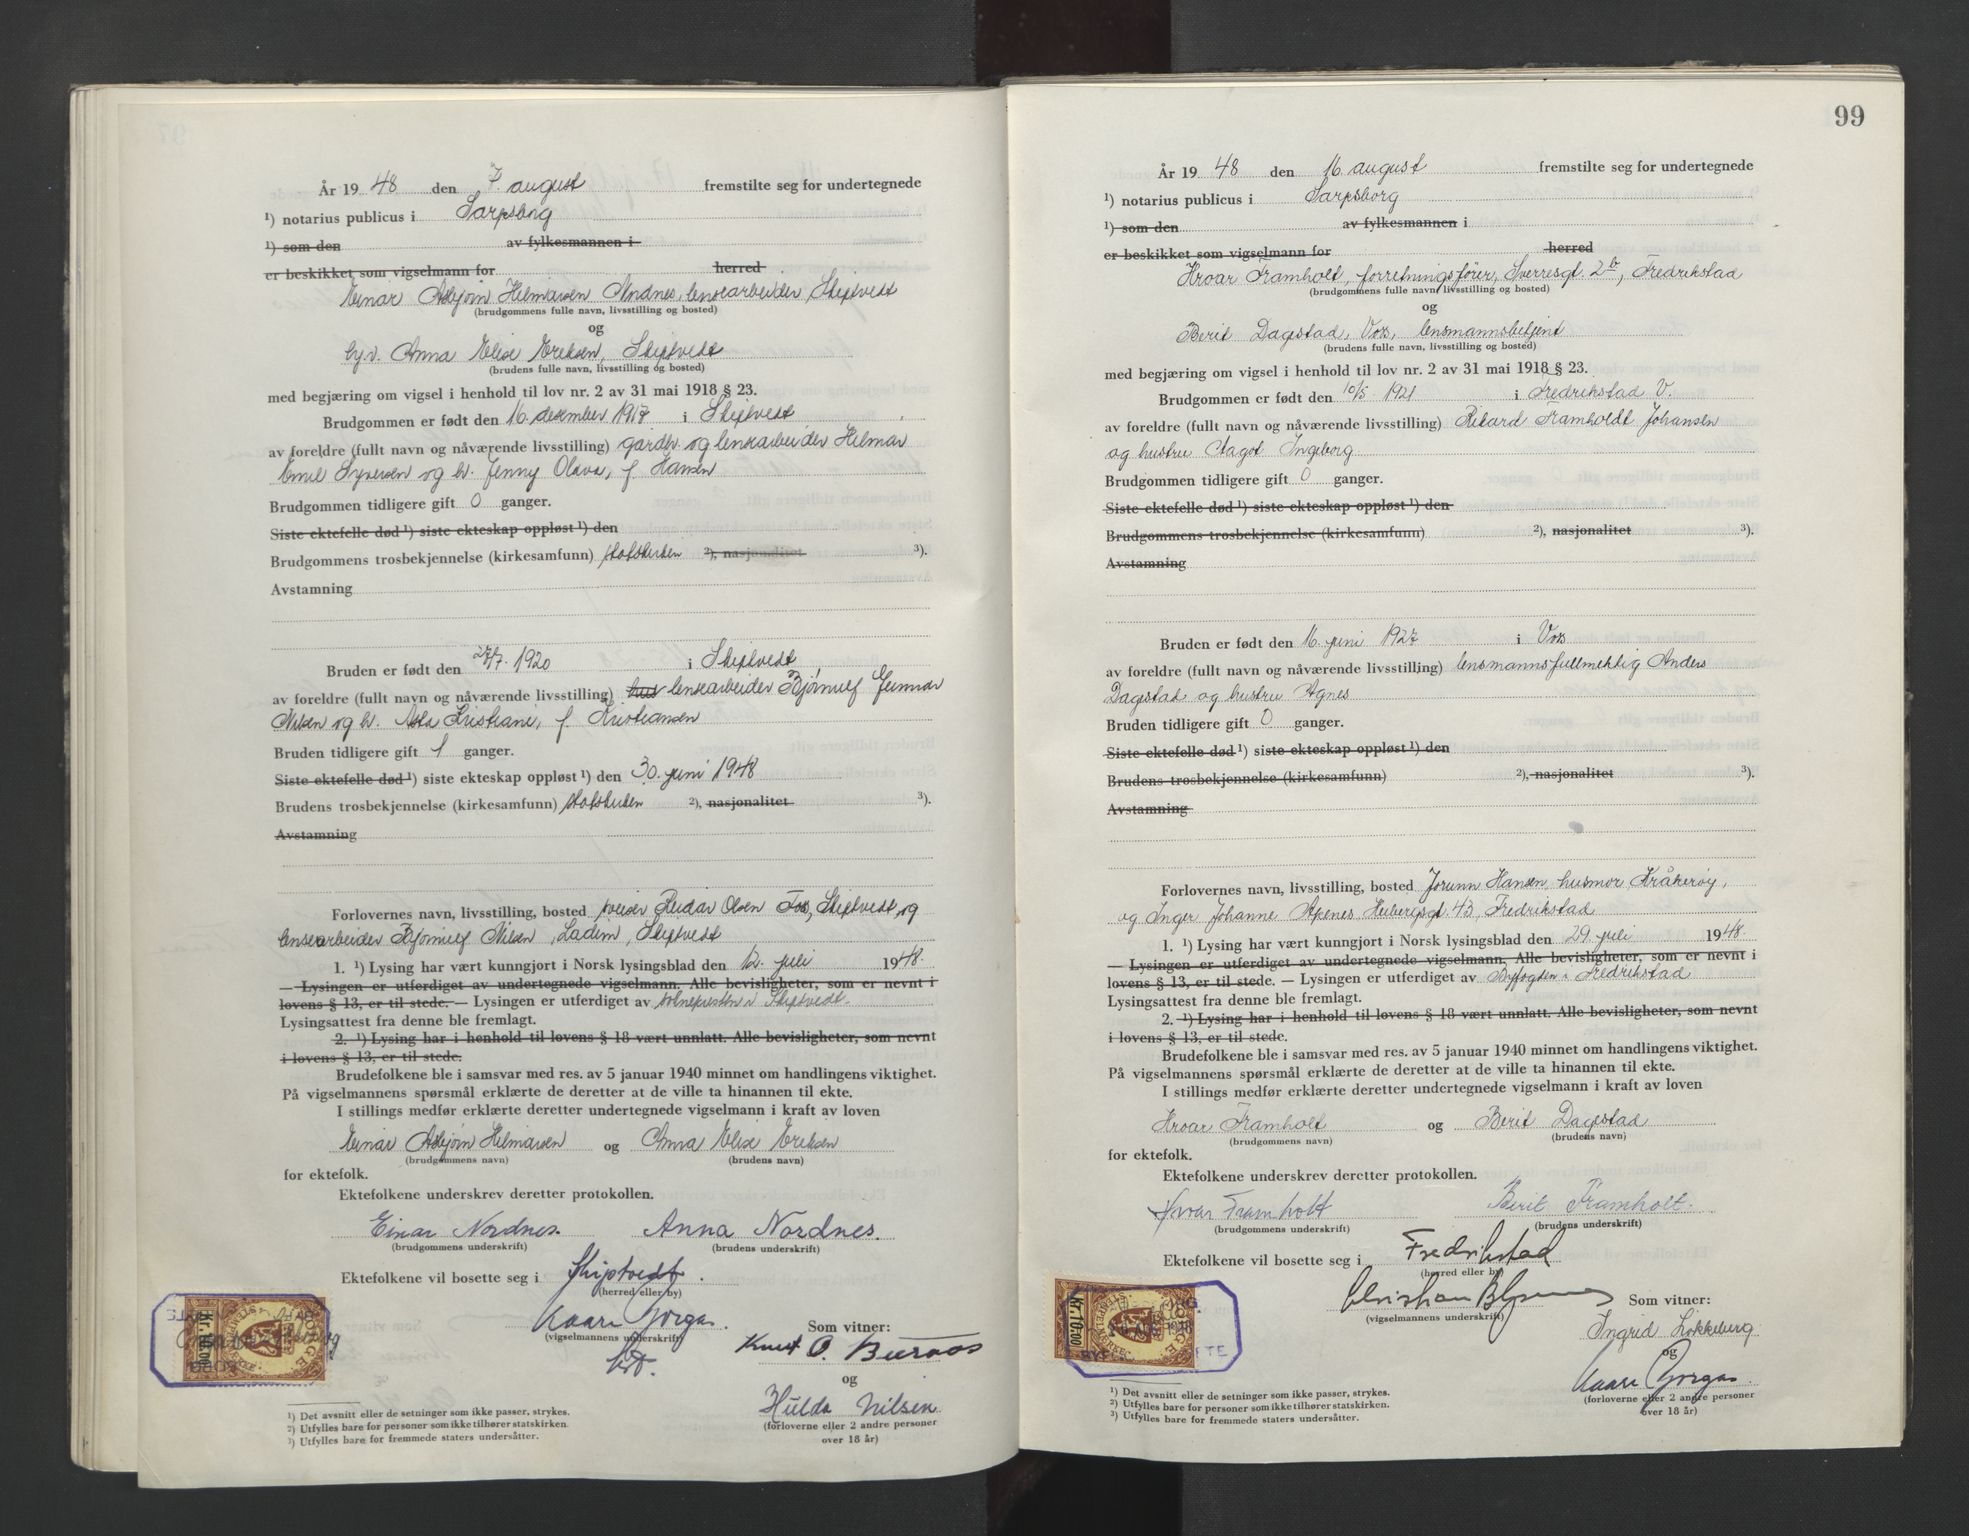 År 19 48 den 7. august fremstilte seg for undertegnede
¹) notarius publicus i Sarpsborg
¹) som den av fylkesmannen i
er beskikket som vigselmann for herred
Einar Asbjørn Hilmarsen Nordnes, lensearbeider, Skiptvedt
(brudgommens fulle navn, livsstilling og bosted)
og
Anna Elise Eriksen, Skiptvedt
(brudens fulle navn, livsstilling og bosted)
med begjæring om vigsel i henhold til lov nr. 2 av 31 mai 1918 § 23.
Brudgommen er født den 16. desember 1917 i Skiptvedt
av foreldre (fullt navn og nåværende livsstilling) gårdbr. og lensearbeider Hilmar
Emil Syversen og h. Jenny Olava, f. Hansen
Brudgommen tidligere gift 0 ganger.
Siste ektefelle død ¹) siste ekteskap oppløst ¹) den
Brudgommens trosbekjennelse (kirkesamfunn) statskirken ²), nasjonalitet ³).
Avstamning
Bruden er født den 27/7. 1920 i Skiptvedt
av foreldre (fullt navn og nåværende livsstilling) hus lensearbeider Bjørnulf Gunnar
Nilsen og h. Asta Kristiane, f. Kristiansen
Bruden tidligere gift 1 ganger.
Siste ektefelle død ¹) siste ekteskap oppløst ¹) den 30. juni 1948
Brudens trosbekjennelse (kirkesamfunn) statskirken ²), nasjonalitet ³).
Avstamning
Forlovernes navn, livsstilling, bosted sveiser Reidar Olsen Foss, Skiptvedt, og
lensearbeider Bjørnulf Nilsen, Ladim, Skiptvedt
1. ¹) Lysing har vært kunngjort i Norsk lysingsblad den 12. juli 1948.
— Lysingen er utferdiget av undertegnede vigselmann. Alle bevisligheter, som er nevnt i
lovens § 13, er til stede. — Lysingen er utferdiget av sokneprsten i Skiptvedt.
Lysingsattest fra denne ble fremlagt.
2. ¹) Lysing har i henhold til lovens § 18 vært unnlatt. Alle bevisligheter, som nevnt
i lovens § 13, er til stede.
Brudefolkene ble i samsvar med res. av 5 januar 1940 minnet om handlingens viktighet.
På vigselmannens spørsmål erklærte de deretter at de ville ta hinannen til ekte.
I stillings medfør erklærte deretter undertegnede vigselmann i kraft av loven
Einar Asbjørn Hilmarsen og Anna Elise Eriksen
(brudgommens navn) (brudens navn)
for ektefolk.
Ektefolkene underskrev deretter protokollen.
Einar Nordnes. Anna Nordnes.
(brudgommens underskrift) (brudens underskrift)
Ektefolkene vil bosette seg i Skiptvedt.
(herred eller by)
Kaare Gorgas. Som vitner:
(vigselmannens underskrift) Knut O. Buraas
og
Hulda Nilsen
(forloverne eller 2 andre personer
over 18 år)
NORGE
STEMPELMERKE
Kr. 10.00
¹) Det avsnitt eller de setninger som ikke passer, strykes.
²) Utfylles bare for personer som ikke tilhører statskirken.
³) Utfylles bare for fremmede staters undersåtter.
99
År 19 48 den 16. august fremstilte seg for undertegnede
¹) notarius publicus i Sarpsborg
¹) som den av fylkesmannen i
er beskikket som vigselmann for herred
Hroar Framholt, forretningsfører, Sverresgt. 2b, Fredrikstad
(brudgommens fulle navn, livsstilling og bosted)
og
Berit Dagestad, Voss, lensmannsbetjent
(brudens fulle navn, livsstilling og bosted)
med begjæring om vigsel i henhold til lov nr. 2 av 31 mai 1918 § 23.
Brudgommen er født den 10/5 1921 i Fredrikstad V.
av foreldre (fullt navn og nåværende livsstilling) Rikard Framholdt Johansen
og hustru Dagot Ingeborg
Brudgommen tidligere gift 0 ganger.
Siste ektefelle død ¹) siste ekteskap oppløst ¹) den
Brudgommens trosbekjennelse (kirkesamfunn) ²), nasjonalitet ³).
Avstamning
Bruden er født den 16. juni 1927 i Voss
av foreldre (fullt navn og nåværende livsstilling) lensmannsfullmektig Anders
Dagestad og hustru Agnes
Bruden tidligere gift 0 ganger.
Siste ektefelle død ¹) siste ekteskap oppløst ¹) den
Brudens trosbekjennelse (kirkesamfunn) ²), nasjonalitet ³).
Avstamning
Forlovernes navn, livsstilling, bosted Jorunn Hansen, husmor, Kråkerøy,
og Inger Johanne Apenes, Heibergsgt. 43, Fredrikstad
1. ¹) Lysing har vært kunngjort i Norsk lysingsblad den 29. juli 1948.
— Lysingen er utferdiget av undertegnede vigselmann. Alle bevisligheter, som er nevnt i
lovens § 13, er til stede. — Lysingen er utferdiget av Byfogden i Fredrikstad
Lysingsattest fra denne ble fremlagt.
2. ¹) Lysing har i henhold til lovens § 18 vært unnlatt. Alle bevisligheter, som nevnt
i lovens § 13, er til stede.
Brudefolkene ble i samsvar med res. av 5 januar 1940 minnet om handlingens viktighet.
På vigselmannens spørsmål erklærte de deretter at de ville ta hinannen til ekte.
I stillings medfør erklærte deretter undertegnede vigselmann i kraft av loven
Hroar Framholt og Berit Dagestad
(brudgommens navn) (brudens navn)
for ektefolk.
Ektefolkene underskrev deretter protokollen.
Hroar Framholt Berit Framholt.
(brudgommens underskrift) (brudens underskrift)
Ektefolkene vil bosette seg i Fredrikstad
(herred eller by)
Christian Som vitner:
(vigselmannens underskrift)
Ingrid Løkkeberg
og
Kaare Gorgas.
(forloverne eller 2 andre personer
over 18 år)
NORGE
STEMPELMERKE
Kr. 10.00
¹) Det avsnitt eller de setninger som ikke passer, strykes.
²) Utfylles bare for personer som ikke tilhører statskirken.
³) Utfylles bare for fremmede staters undersåtter.